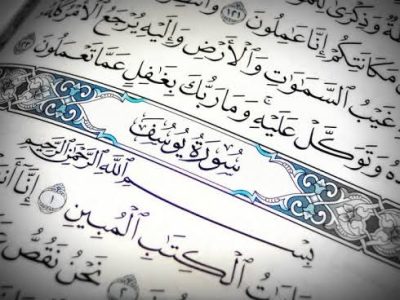 وَذِكْرَىٰ
مَكَانَتِكُمْ إِنَّا عَٰمِلُونَ ١٢١
غَيْبُ ٱلسَّمَٰوَٰتِ وَٱلْأَرْضِ وَإِلَيْهِ يُرْجَعُ ٱلْأَمْرُ كُلُّهُ
وَتَوَكَّلْ عَلَيْهِ ۚ وَمَا رَبُّكَ بِغَٰفِلٍ عَمَّا تَعْمَلُونَ
سُورَةُ يُوسُفَ
بِسْمِ ٱللَّهِ ٱلرَّحْمَٰنِ ٱلرَّحِيمِ
ٱلْكِتَٰبِ ٱلْمُبِينِ ١ إِنَّا
٢ نَحْنُ نَقُصُّ